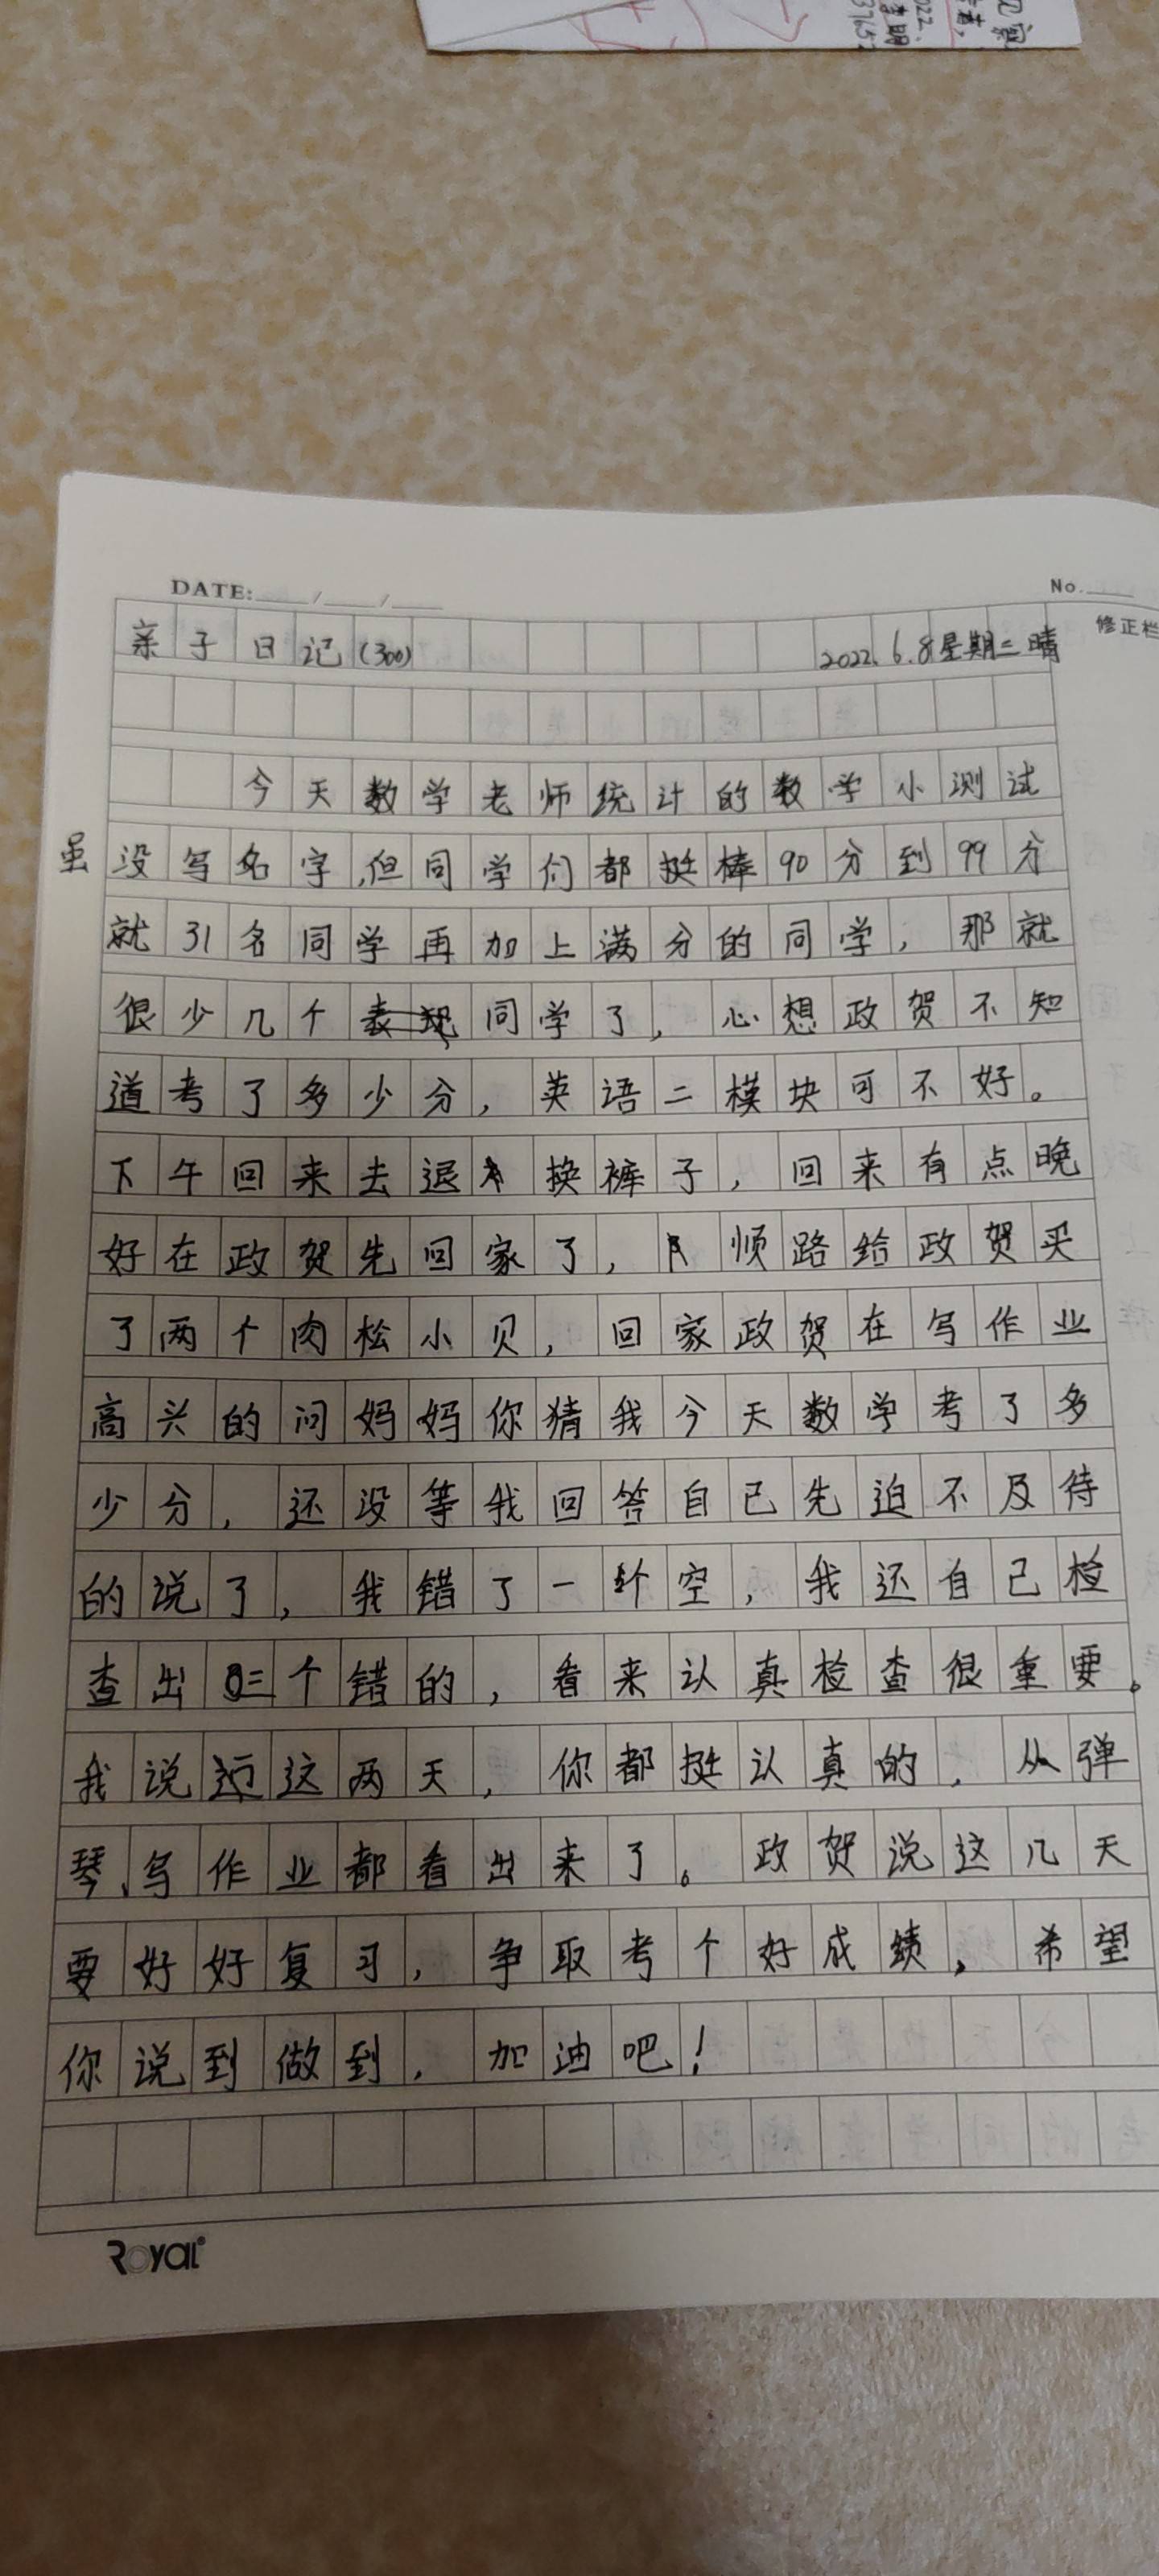 DATE: / /
No.
修正栏
亲子日记(300) 2022.6.8星期三晴
今天数学老师统计的数学小测试
虽没写名字,但同学们都挺棒90分到99分
就31名同学再加上满分的同学,那就
很少几个同学了,心想政贺不知
道考了多少分,英语二模块可不好。
下午回来去退换裤子,回来有点晚
好在政贺先回家了,顺路给政贺买
了两个肉松小贝,回家政贺在写作业
高兴的问妈妈你猜我今天数学考了多
少分,还没等我回答自己先迫不及待
的说了,我错了一个空,我还自己检
查出三个错的,看来认真检查很重要。
我说这两天,你都挺认真的,从弹
琴、写作业都看出来了。政贺说这几天
要好好复习,争取考个好成绩,希望
你说到做到,加油吧!
Royal